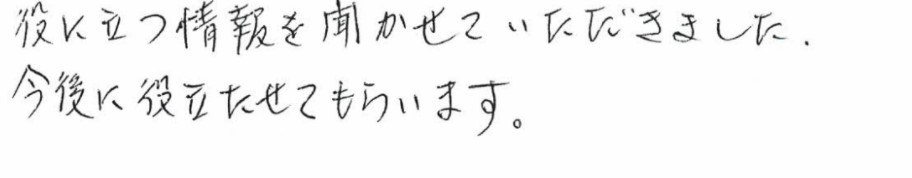 役に立つ情報を聞かせていただきました.
今後に役立たせてもらいます。